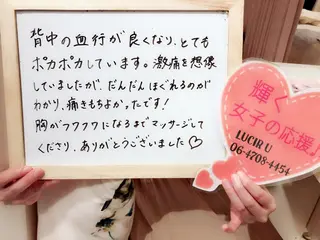 背中の血行が良くなり、とても
ポカポカしています。激痛を想像
していましたが、だんだんほぐれるのが
わかり、痛きもちよかったです！
胸がフワフワになるまでマッサージして
くださり、ありがとうございました♡
輝く
女子の応援
LUCIR U
06-4708-4454